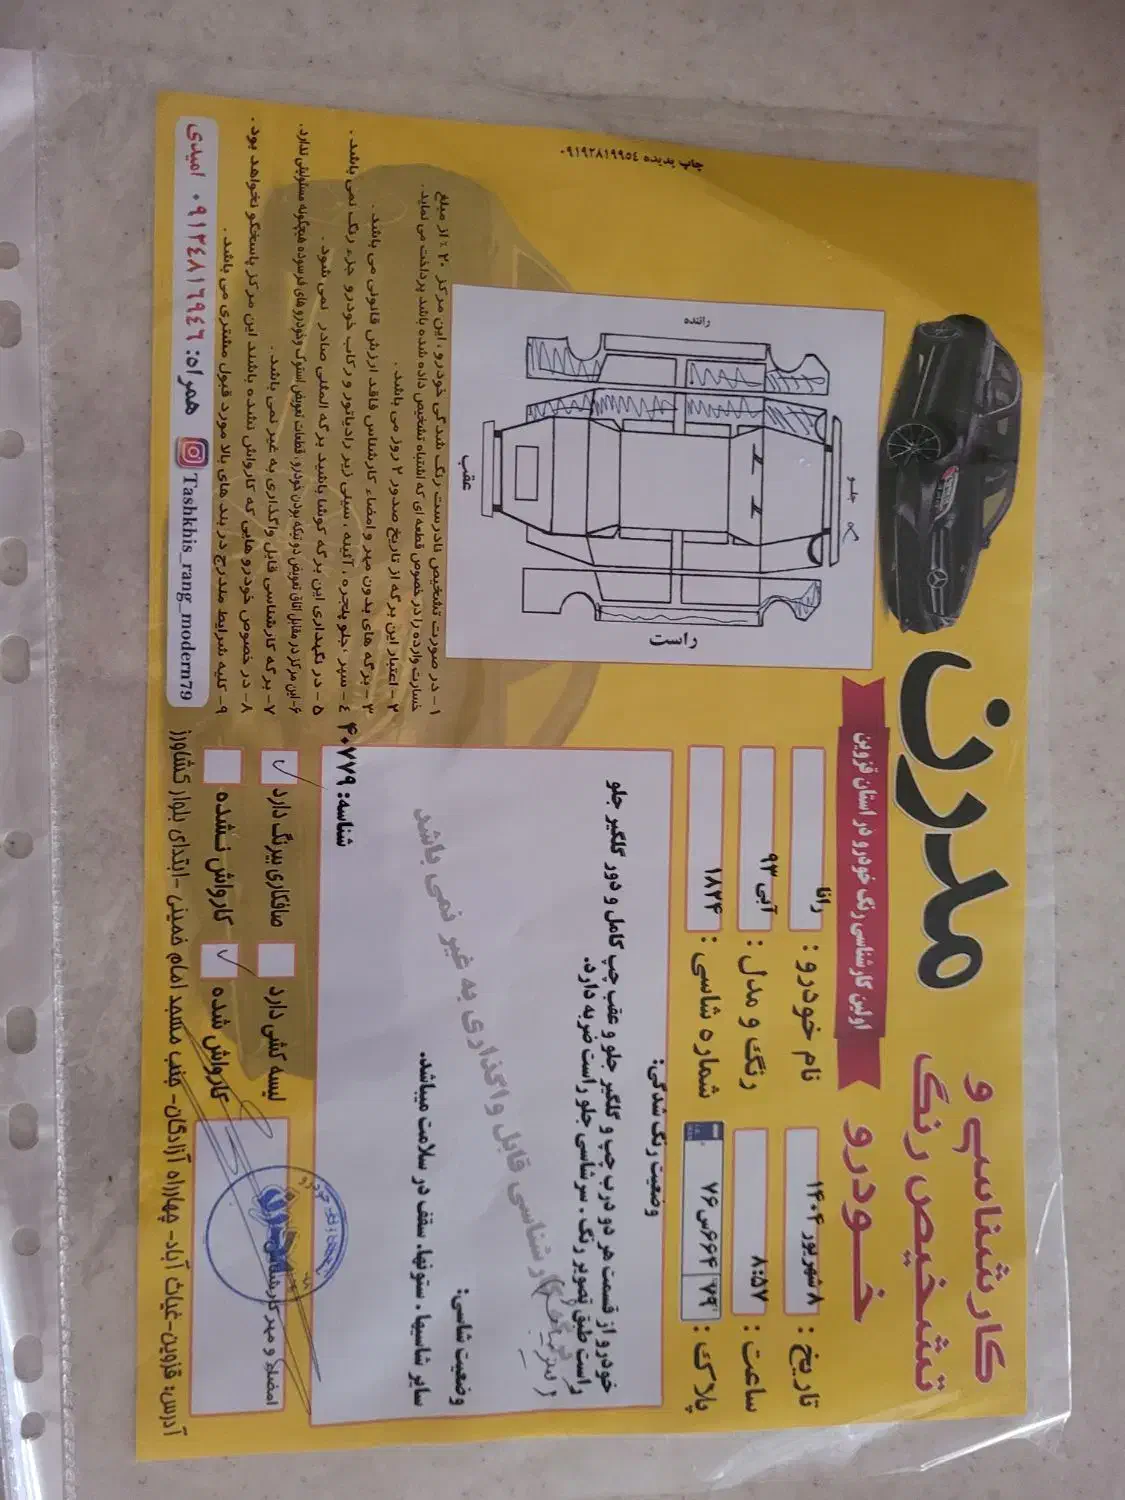 کارشناسی و
تشخیص رنگ
خودرو
مدرن
اولین کارشناسی رنگ خودرو در استان قزوین
نام خودرو: رانا
رنگ و مدل: آبی ۹۳
شماره شاسی: ۱۸۲۴
تاریخ: ۸ شهریور ۱۴۰۴
ساعت: ۸:۵۷
پلاک: ۷۶س۶۶۴ ۷۹
وضعیت رنگ شدگی:
خودرو از قسمت هر دو درب چپ و گلگیر جلو و عقب چپ کامل و دور گلگیر جلو
راست طبق تصویر رنگ. سرشاسی جلو راست ضربه دارد.
کارشناسی قابل واگذاری به غیر نمی باشد
وضعیت شاسی:
سایر شاسیها، ستونها، سقف در سلامت میباشد.
شناسه: ۴۰۷۷۹
لیسه کشی دارد
صافکاری بیرنگ دارد
کارواش شده
کارواش نشده
امضاء و مهر کارشناس
راننده
جلو
عقب
راست
۱- در صورت تشخیص نادرست رنگ شدگی خودرو، این مرکز ۲۰٪ از مبلغ
خسارت وارده را در خصوص قطعه ای که اشتباه تشخیص داده شده باشد پرداخت می نماید.
۲- اعتبار این برگه از تاریخ صدور ۲ روز می باشد.
۳- برگه های بدون مهر و امضاء کارشناس فاقد ارزش قانونی می باشد.
۴- سپر، جلو پنجره، آئینه، سینی زیر رادیاتور و رکاب خودرو جزء رنگ نمی باشد.
۵- در نگهداری این برگه کوشا باشید برگه المثنی صادر نمی شود.
۶- این مرکز در مقابل اتاق تعویض، دو تیکه بودن خودرو، قطعات تعویض استوک و خودرو های فرسوده هیچگونه مسئولیتی ندارد.
۷- برگه کارشناسی قابل واگذاری به غیر نمی باشد.
۸- در خصوص خودرو هایی که کارواش نشده باشند این مرکز پاسخگو نخواهد بود.
۹- کلیه شرایط مندرج در بند های بالا مورد قبول مشتری می باشد.
Tashkhis_rang_modern79
همراه: ۰۹۱۲۴۸۱۶۹۴۶ امیدی
آدرس: قزوین-غیاث آباد- چهارراه آزادگان- جنب مسجد امام خمینی -ابتدای بلوار کشاورز
چاپ پدیده ۰۹۱۹۲۸۱۹۹۵٤